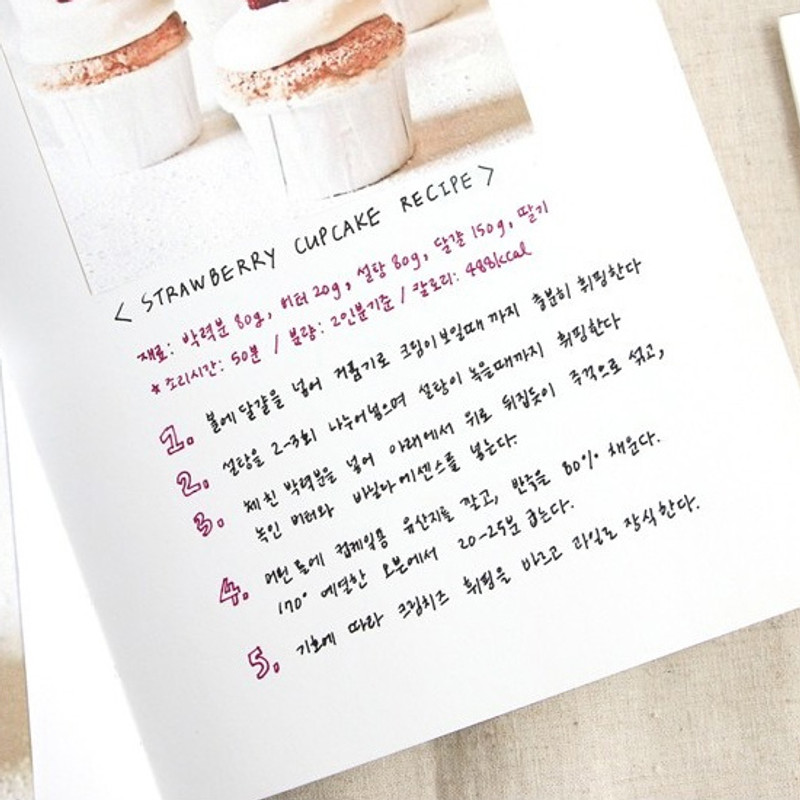 < STRAWBERRY CUPCAKE RECIPE >
재료: 박력분 80g, 버터 20g, 설탕 80g, 달걀 150g, 딸기
* 조리시간: 50분 / 분량: 2인분기준 / 칼로리: 488kcal
1. 볼에 달걀을 넣어 거품기로 크림이 보일때 까지 충분히 휘핑한다
2. 설탕을 2-3회 나누어 넣으며 설탕이 녹을때까지 휘핑한다
3. 체친 박력분을 넣어 아래에서 위로 뒤집듯이 주걱으로 섞고,
녹인 버터와 바닐라에센스를 넣는다.
4. 머핀틀에 컵케익용 유산지를 깔고, 반죽을 80% 채운다.
170° 예열한 오븐에서 20-25분 굽는다.
5. 기호에 따라 크림치즈 휘핑을 바르고 과일로 장식한다.